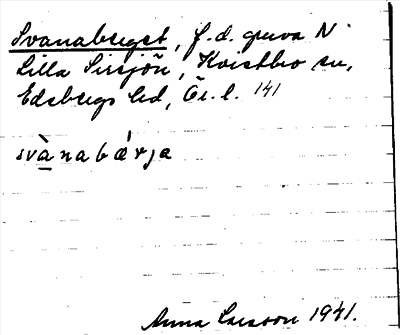 Svanaberget, f.d. gruva N
Lilla Sirsjön, Kvistbro sn,
Edsbergs hd, Ör. l. 141
svànabárja
Anna Larsson 1941.